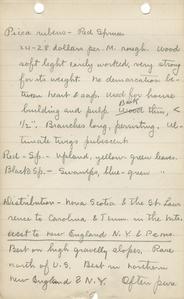 Picea rubens - Red Spruce
24-28 dollars per M. rough. Wood
soft light early worked, very strong
for its weight. No demarcation be-
tween heart & sap. Used for house
building and pulp. Bark thin, <
1/2". Branches long, persisting. Ul-
timate twigs pubescent
Red-Sp.- Upland, yellow-green leaves.
Black Sp.- Swamps, blue-green "
Distribution - Nova Scotia & the St. Law-
rence to Carolina & Tenn. in the Mts.
West to New England N.Y. & Penna.
Best on high gravelly slopes. Rare
north of U.S. Best in northern
New England & N.Y. Often pure